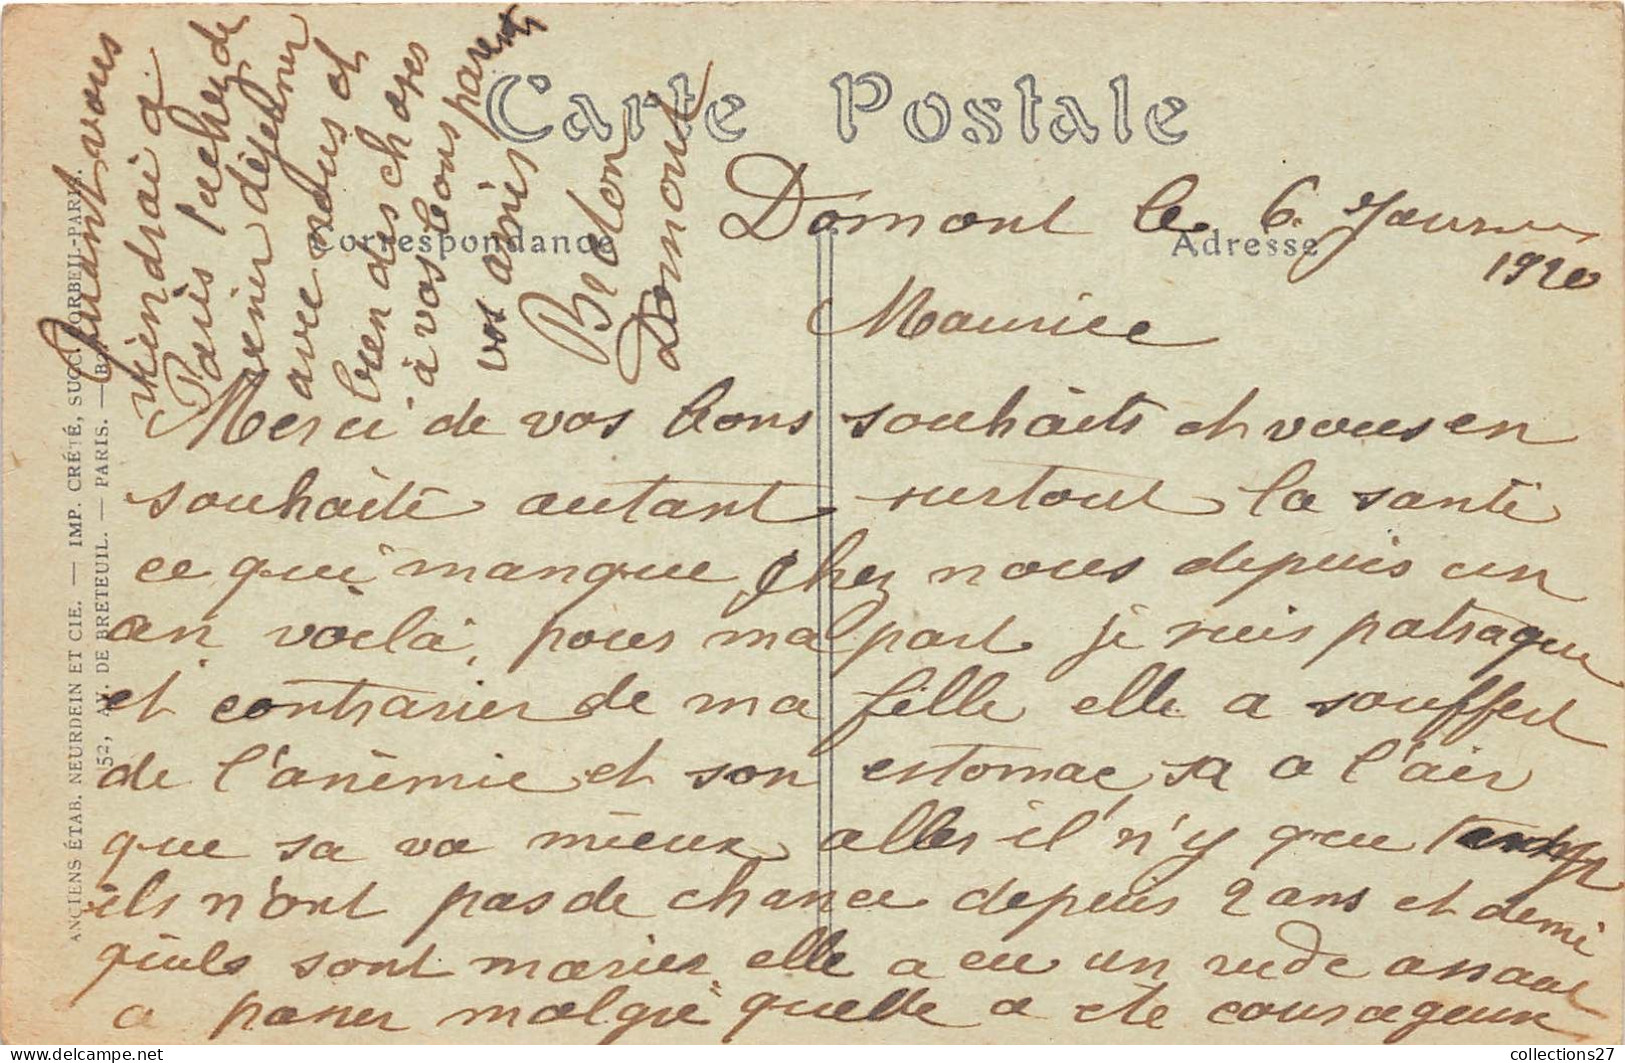 Carte Postale
Correspondance
Adresse
Domont le 6 Janvier
1920
Maurice
Merci de vos bons souhaits et vous en
souhaite autant surtout la santé
ce qui manque chez nous depuis un
an voilà, pour ma part je suis patraque
et contrarier de ma fille elle a souffert
de l'anémie et son estomac sa a l'air
que sa va mieux alles il n'y que
ils n'ont pas de chance depuis 2 ans et demi
quils sont marier elle a eu un rude assaut
a passer malgré quelle a été courageuse
Quant vous
viendrai a
Paris tacher de
venir déjeuner
avec nous et
bien des choses
à vos bons parents
vos amis
Breton
Domont
ANCIENS ÉTAB. NEURDEIN ET CIE. — IMP. CRÉTÉ, SUCC. CORBEIL-PARIS.
52, AV. DE BRETEUIL. — PARIS. —
collections27